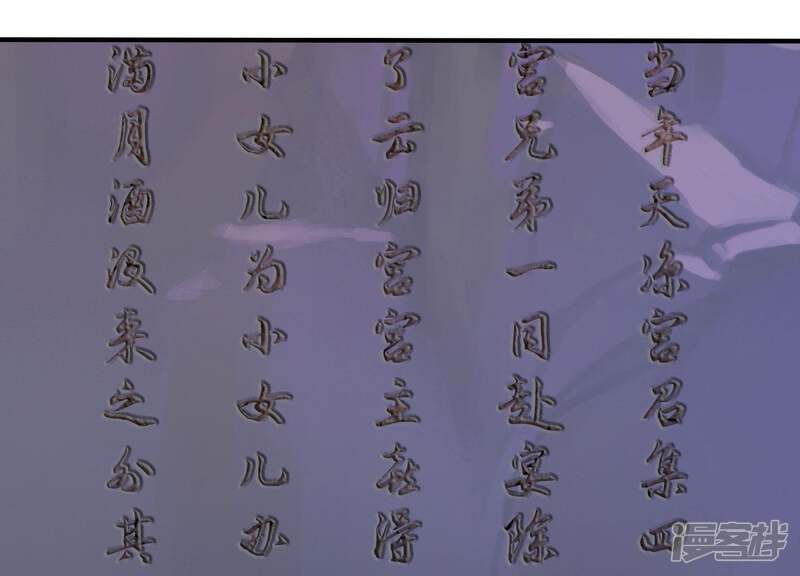 当年天凉宫召集四
宫兄弟一同赴宴除
了云归宫宫主喜得
小女儿为小女儿办
满月酒没来之外其
漫客栈